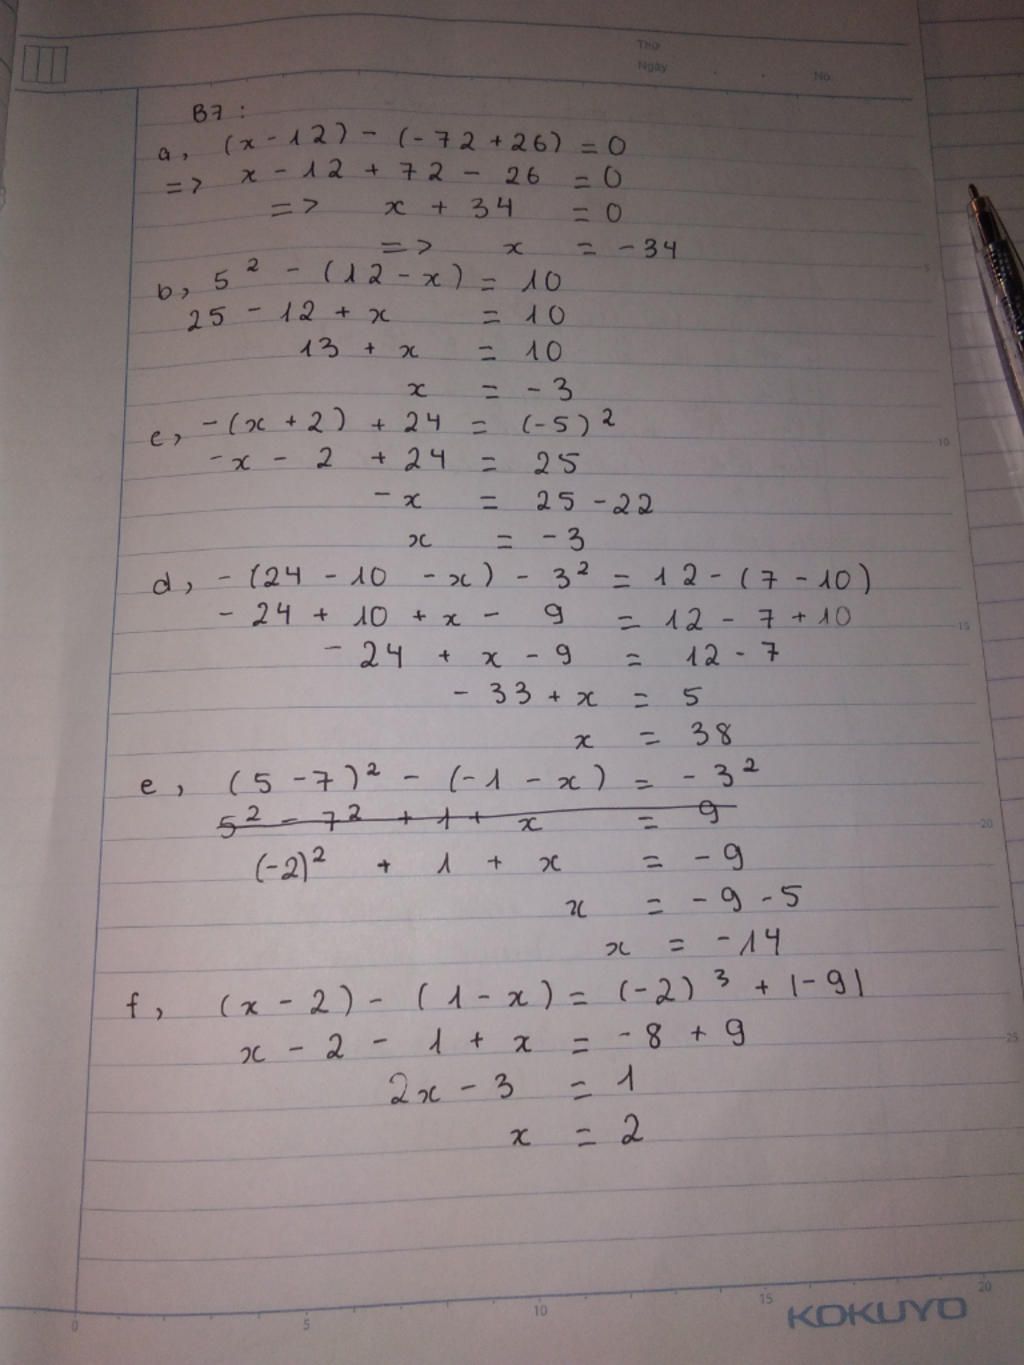 Thứ
Ngày . . No.
B7 :
a, (x - 12) - (- 72 + 26) = 0
=> x - 12 + 72 - 26 = 0
=> x + 34 = 0
=> x = - 34
b, 5² - (12 - x) = 10
25 - 12 + x = 10
13 + x = 10
x = - 3
c, -(x + 2) + 24 = (-5)²
-x - 2 + 24 = 25
- x = 25 - 22
x = - 3
d, - (24 - 10 - x) - 3² = 12 - (7 - 10)
- 24 + 10 + x - 9 = 12 - 7 + 10
- 24 + x - 9 = 12 - 7
- 33 + x = 5
x = 38
e, (5 - 7)² - (-1 - x) = - 3²
5² - 7² + 1 + x = 9
(-2)² + 1 + x = - 9
x = - 9 - 5
x = - 14
f, (x - 2) - (1 - x) = (-2)³ + |-9|
x - 2 - 1 + x = - 8 + 9
2x - 3 = 1
x = 2
5
10
15
20
25
0 5 10 15 20
KOKUYO